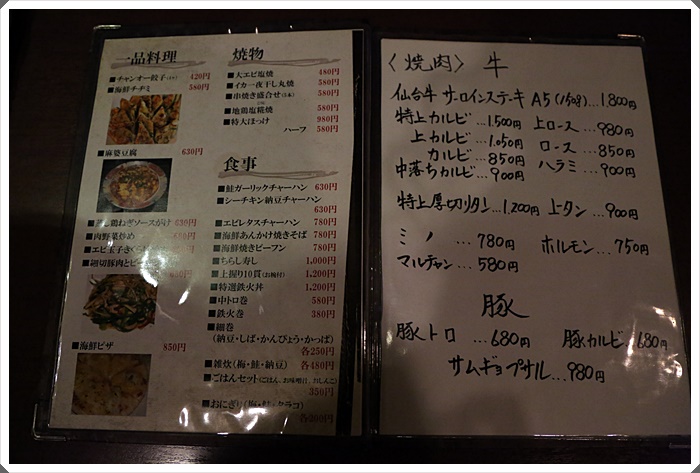 一品料理
■チャンオー餃子 420円
■海鮮チヂミ 580円
■麻婆豆腐 630円
蒸し鶏ねぎソースがけ 630円
■肉野菜炒め
■海鮮ピザ 850円
焼物
■大エビ塩焼 480円
■イカ一夜干し丸焼 580円
■串焼き盛合せ(5本) 580円
■地鶏塩糀焼 580円
■特大ほっけ 980円
ハーフ 580円
食事
■鮭ガーリックチャーハン 630円
■シーチキン納豆チャーハン
630円
■エビレタスチャーハン 780円
■海鮮あんかけ焼きそば 780円
■海鮮焼きビーフン 780円
■ちらし寿し 1,000円
■上握り10貫(お椀付) 1,200円
■特選鉄火丼 1,200円
■中トロ巻 580円
■鉄火巻 380円
■細巻
(納豆・しば・かんぴょう・かっぱ)
各250円
■雑炊(梅・鮭・納豆) 各480円
■ごはんセット(ごはん、お味噌汁、おしんこ)
350円
■おにぎり(梅・鮭・タラコ)
各200円
〈焼肉〉 牛
仙台牛 サーロインステーキ A5(150g)…1,800円
特上カルビ…1,500円 上ロース…980円
上カルビ…1,050円 ロース…850円
カルビ…850円 ハラミ…900円
中落ちカルビ…900円
特上厚切りタン…1,200円 上タン…900円
ミノ…780円 ホルモン…750円
マルチャン…580円
豚
豚トロ…680円 豚カルビ…680円
サムギョプサル…980円